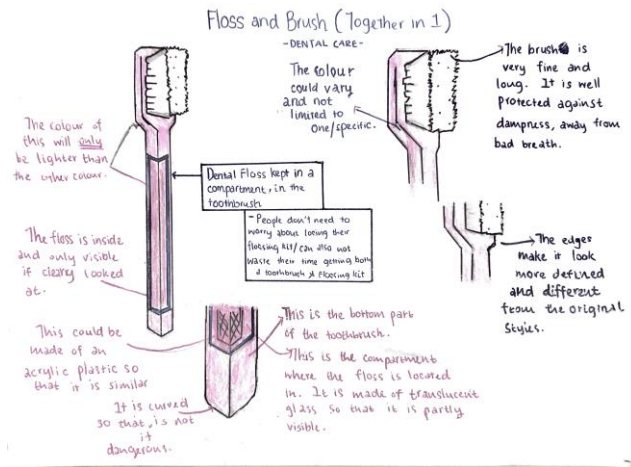 Floss and Brush (Together in 1)
-DENTAL CARE-
The colour
could vary
and not
limited to
one/specific.
The brush is
very fine and
long. It is well
protected against
dampness, away from
bad breath.
The colour of
this will only
be lighter than
the other colour.
Dental Floss kept in a
compartment, in the
toothbrush
- People don't need to
worry about losing their
flossing kit/can also not
waste their time getting both
a toothbrush & flossing kit
The floss is inside
and only visible
if cleary looked
at.
The edges
make it look
more defined
and different
from the original
styles.
This could be
made of an
acrylic plastic so
that it is similar
It is curved
so that, is not
it
dangerous.
This is the bottom part
of the toothbrush.
This is the compartment
where the floss is located
in. It is made of translucent
glass so that it is partly
visible.